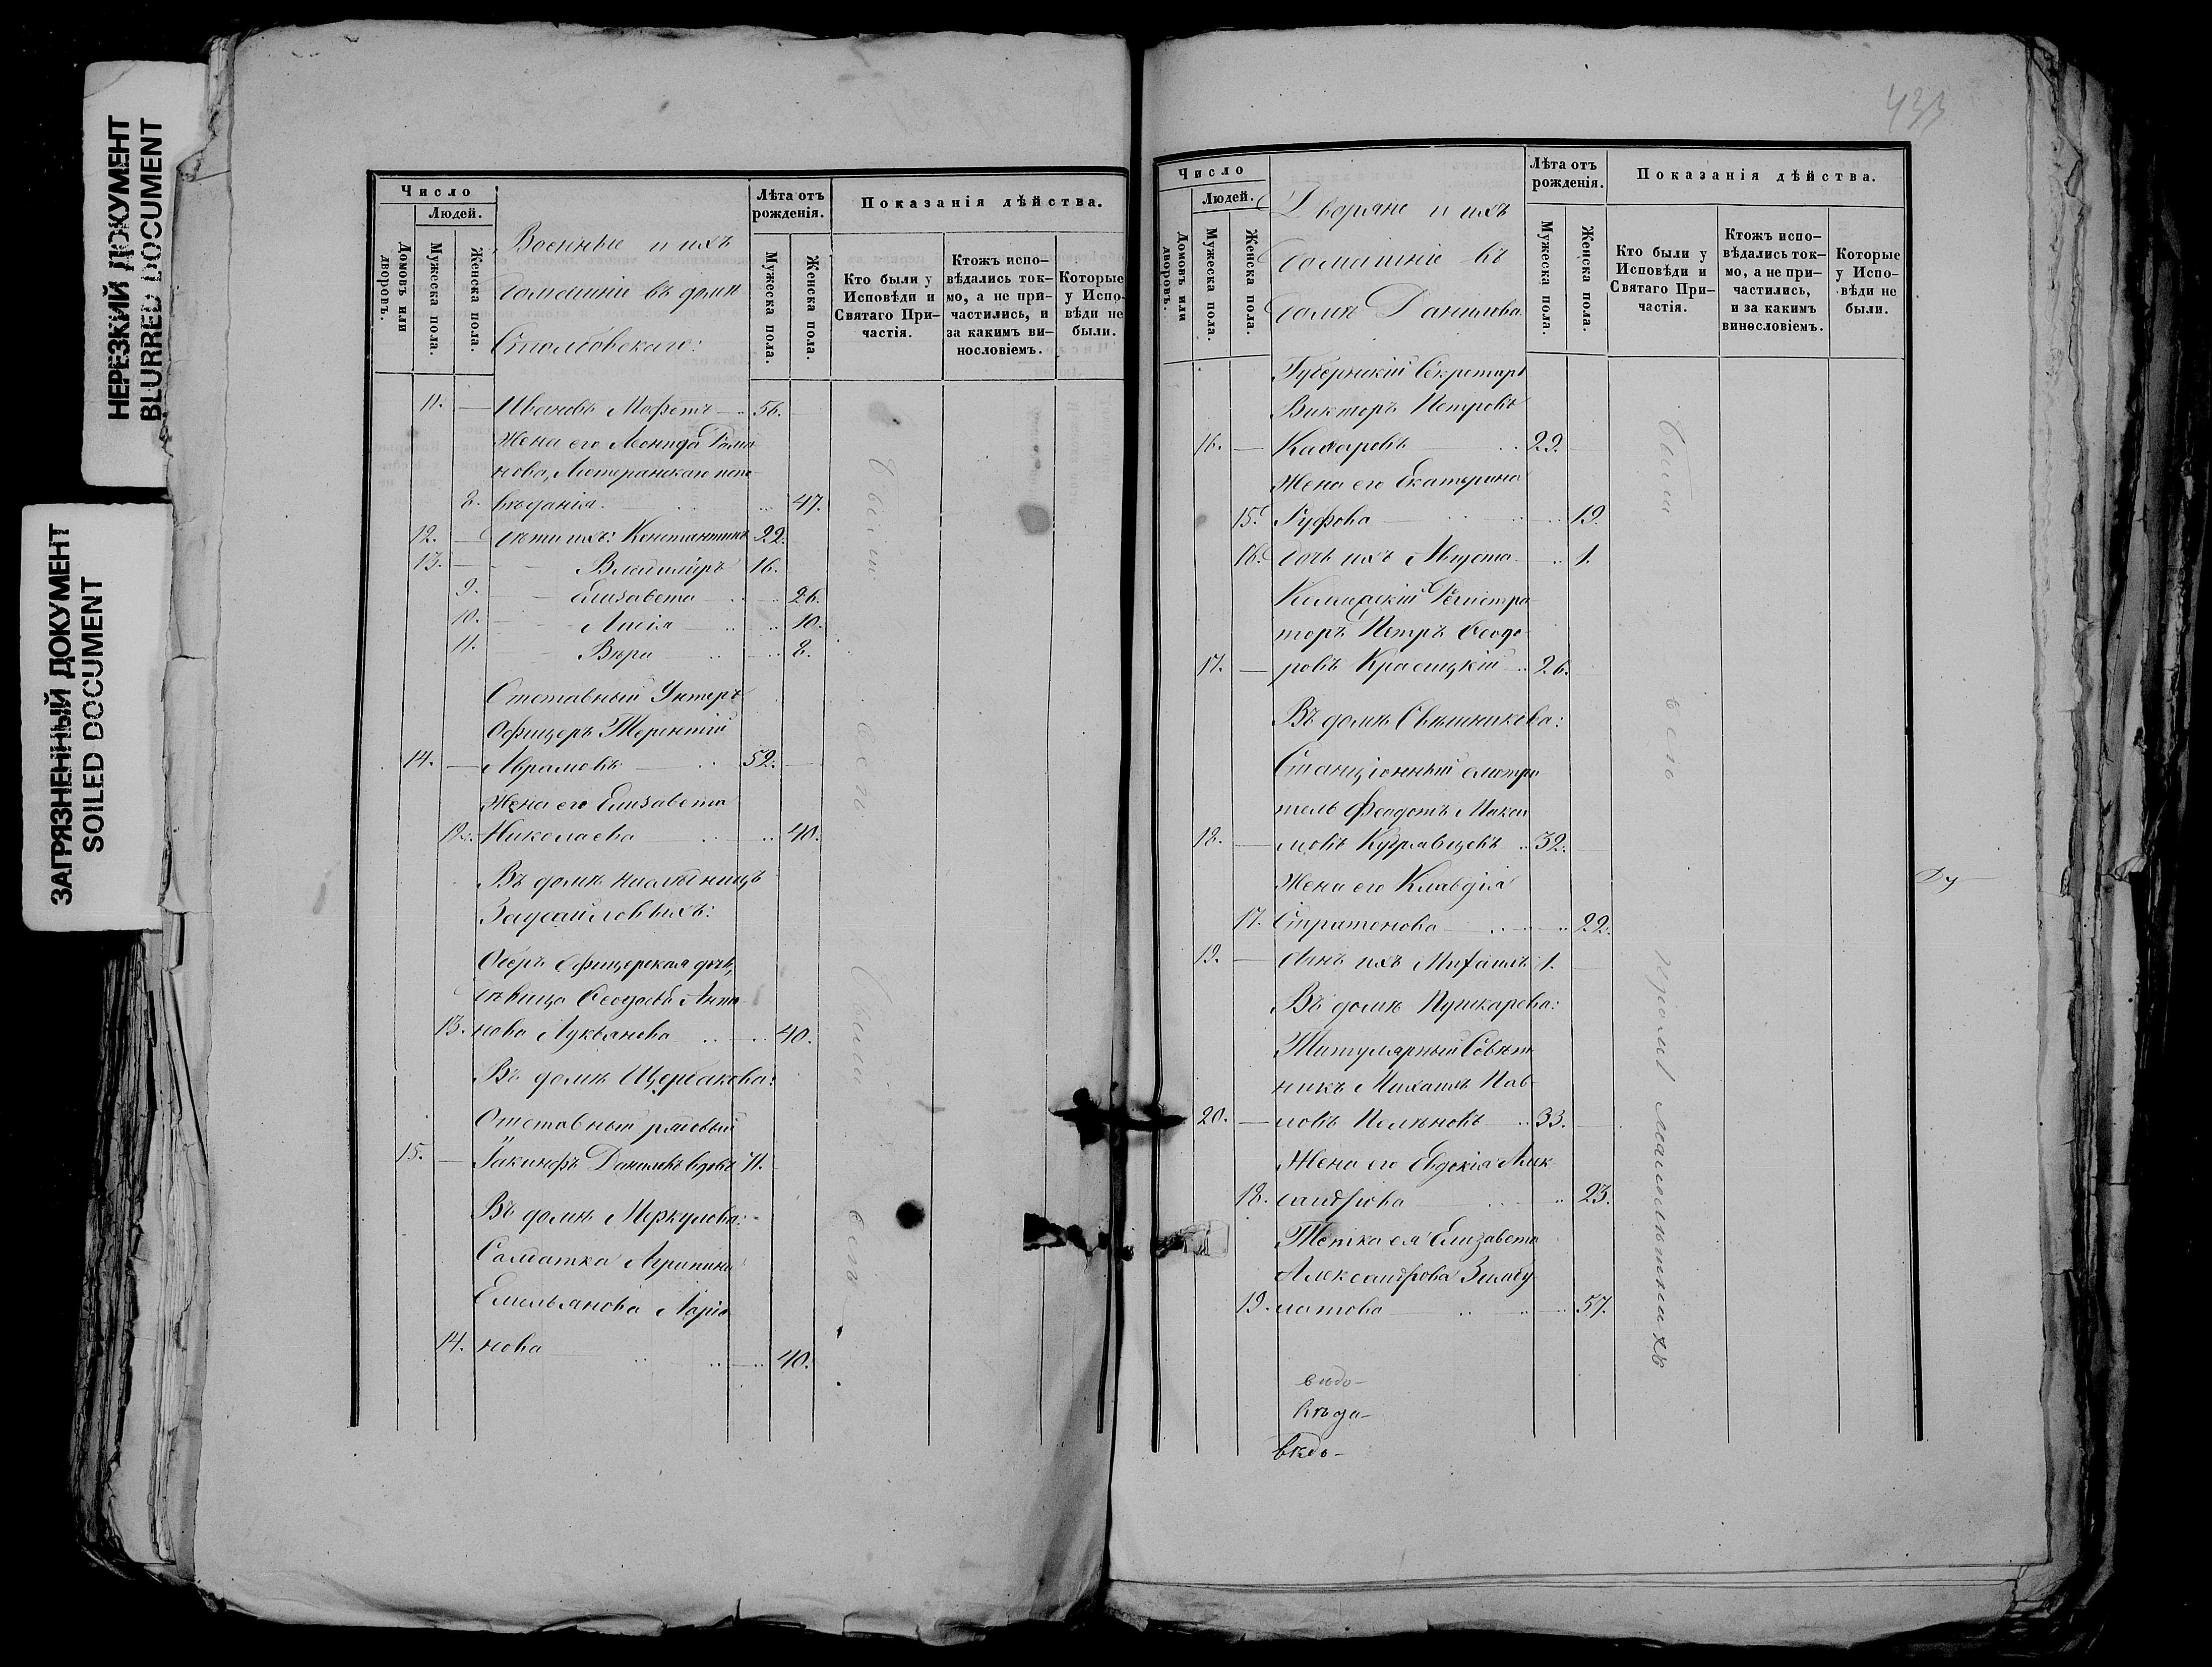 НЕРЕЗКИЙ ДОКУМЕНТ
BLURRED DOCUMENT
ЗАГРЯЗНЕННЫЙ ДОКУМЕНТ
SOILED DOCUMENT
Число
Людей.
Домовъ или дворовъ.
Мужеска пола.
Женска пола.
Военные и ихъ
домашніе въ домѣ
Столбовскаго:
Лѣта отъ рожденія.
Мужеска пола.
Женска пола.
Показанія дѣйства.
Кто были у Исповѣди и Святаго Причастія.
Ктожъ исповѣдались токмо, а не причастились, и за какимъ винословіемъ.
Которые у Исповѣди не были.
11. Ивановъ 56.
Жена его Рома
нова, Лютеранскаго испо
8. вѣданія 47.
12. Дѣти ихъ: Константинъ 22.
13. Владиміръ 16.
9. Елизавета 26.
10. Лидія 10.
11. Вѣра 8.
Отставный Унтеръ
Офицеръ Терентій
14. Абрамовъ 52.
Жена его Елизавета
12. Николаева 40.
Въ домѣ наслѣдницъ
Оберъ Офицерская дочь,
дѣвица Ѳеодосія Анто
13. нова Лукьянова 40.
Въ домѣ Щербакова:
Отставный рядовый
15. Іакинфъ Даниловъ вдовъ 71.
Въ домѣ Меркулова:
Солдатка Агрипина
Емельянова Ларіо
14. нова 40.
были
всѣ
были
всѣ
433
Число
Людей.
Домовъ или дворовъ.
Мужеска пола.
Женска пола.
Дворяне и ихъ
домашніе въ
домѣ Данилова
Лѣта отъ рожденія.
Мужеска пола.
Женска пола.
Показанія дѣйства.
Кто были у Исповѣди и Святаго Причастія.
Ктожъ исповѣдались токмо, а не причастились, и за какимъ винословіемъ.
Которые у Исповѣди не были.
Губернскій Секретарь
Викторъ Петровъ
16. 22.
Жена его Екатерина
15. Руфова 19.
16. Дочь ихъ Августа 1.
Коллежскій Регистра
торъ Петръ Ѳеодо
17. ровъ Красицкій 26.
Въ домѣ Свѣшникова:
Станціонный смотри
тель Феодотъ Макси
18. мовъ Кудрявцевъ 32.
Жена его Клавдія
17. Стратонова 22.
19. Сынъ ихъ Михаилъ 1.
Въ домѣ Пушкарева:
Титулярный Совѣт
никъ Михаилъ Пав
20. ловъ 33.
Жена его Евдокія Алек
18. сандрова 23.
Тетка ея Елизавета
Александрова
19. 57.
были
всѣ
кромѣ малолѣтнихъ
вѣдо-
вѣдо-